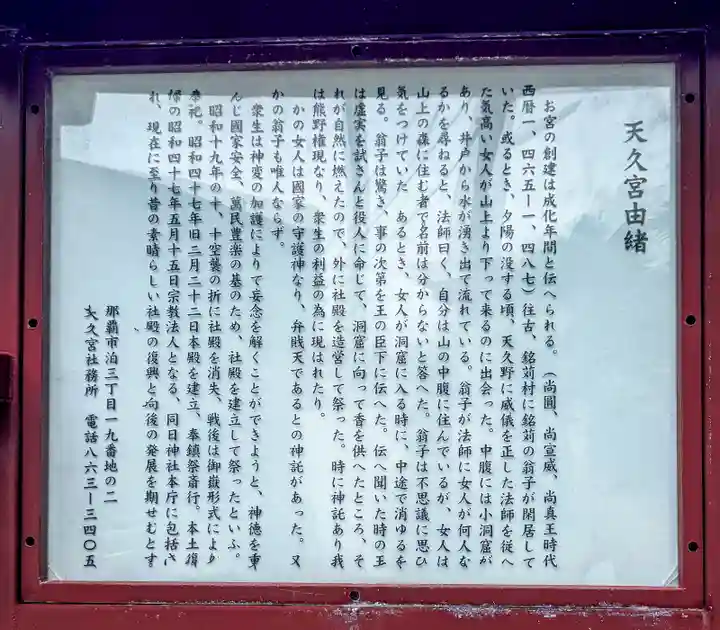 天久宮由緒
お宮の創建は成化年間と伝へられる。（尚圓、尚宣威、尚真王時代
西暦一、四六五―一、四八七）往古、銘苅村に銘苅の翁子が閑居して
いた。或るとき、夕陽の没する頃、天久野に威儀を正した法師を従へ
た気高い女人が山上より下って来るのに出会った。中腹には小洞窟が
あり、井戸から水が湧き出て流れている。翁子が法師に女人が何人な
るかを尋ねると、法師曰く、自分は山の中腹に住んでいるが、女人は
山上の森に住む者で名前は分からないと答へた。翁子は不思議に思ひ
気をつけていた。あるとき、女人が洞窟に入る時に、中途で消ゆるを
見る。翁子は驚き、事の次第を王の臣下に伝へた。伝へ聞いた時の王
は虚実を試さんと役人に命じて、洞窟に向って香を供へたところ、そ
れが自然に燃えたので、外に社殿を造営して祭った。時に神託あり我
は熊野権現なり、衆生の利益の為に現はれたり。
かの女人は國家の守護神なり、弁財天であるとの神託があった。又
かの翁子も唯人ならず。
衆生は神変の加護によりて妄念を解くことができようと、神徳を重
んじ國家安全、萬民豊楽の基のため、社殿を建立して祭ったといふ。
昭和十九年の十、十空襲の折に社殿を消失、戦後は御嶽形式により
奉祀。昭和四十七年旧三月二十二日本殿を建立、奉鎮祭斎行。本土復
帰の昭和四十七年五月十五日宗教法人となる、同日神社本庁に包括さ
れ、現在に至り昔の素晴らしい社殿の復興と向後の発展を期せむとす
那覇市泊三丁目一九番地の二
天久宮社務所　電話八六三―三四〇五